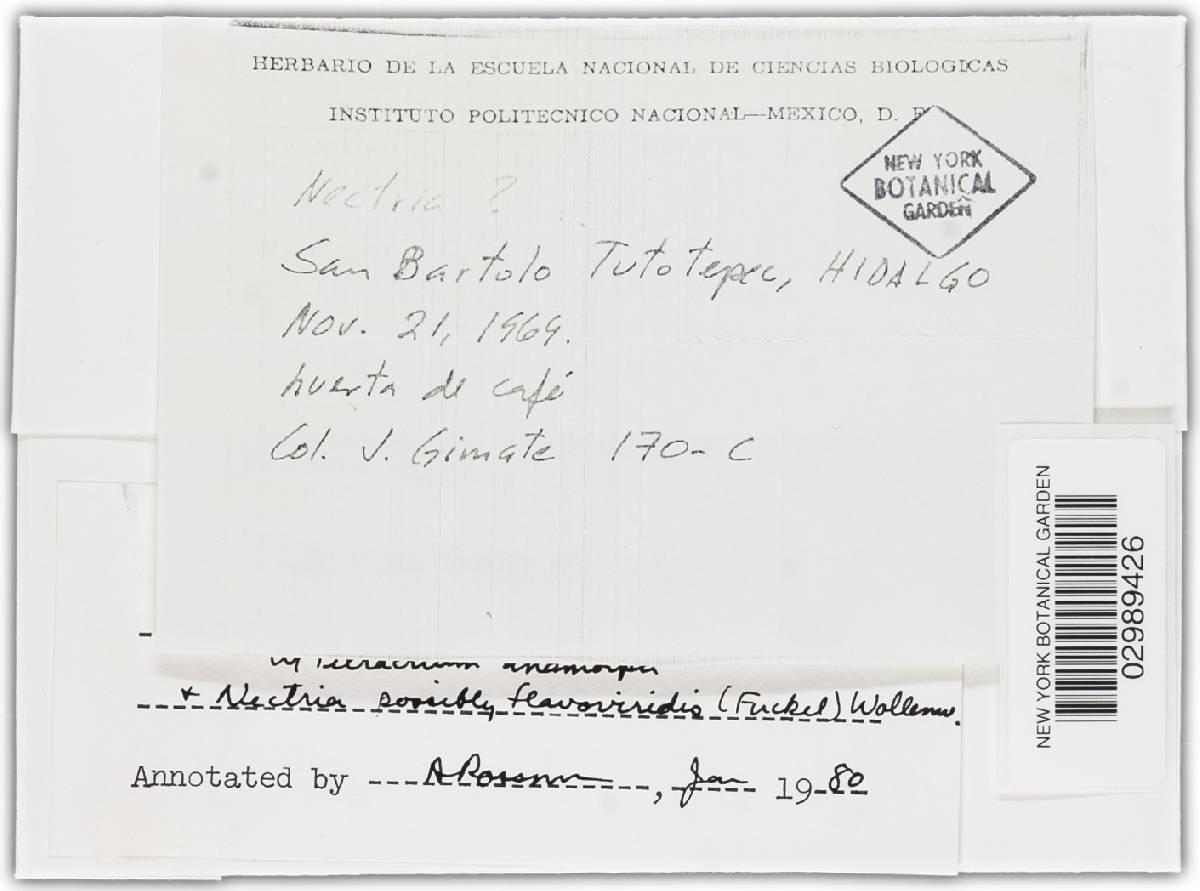 HERBARIO DE LA ESCUELA NACIONAL DE CIENCIAS BIOLOGICAS
INSTITUTO POLITECNICO NACIONAL—MEXICO, D. F.
NEW YORK
BOTANICAL
GARDEN
Nectria ?
San Bartolo Tutotepec, HIDALGO
Nov. 21, 1969.
huerta de café
Col. J. Gimate 170-C
anamorph
+ Nectria possibly flavoviridis (Fuckel) Wollenw.
Annotated by A Rossman, Jan 1980
NEW YORK BOTANICAL GARDEN
02989426